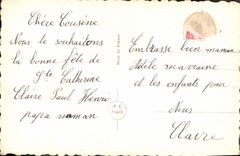 Chère Cousine
Nous te souhaitons
la bonne fête de
Ste Catherine
Claire Paul Henri
papa maman
Embrasse bien maman
Adèle marraine
et les enfants pour
Nous
Claire